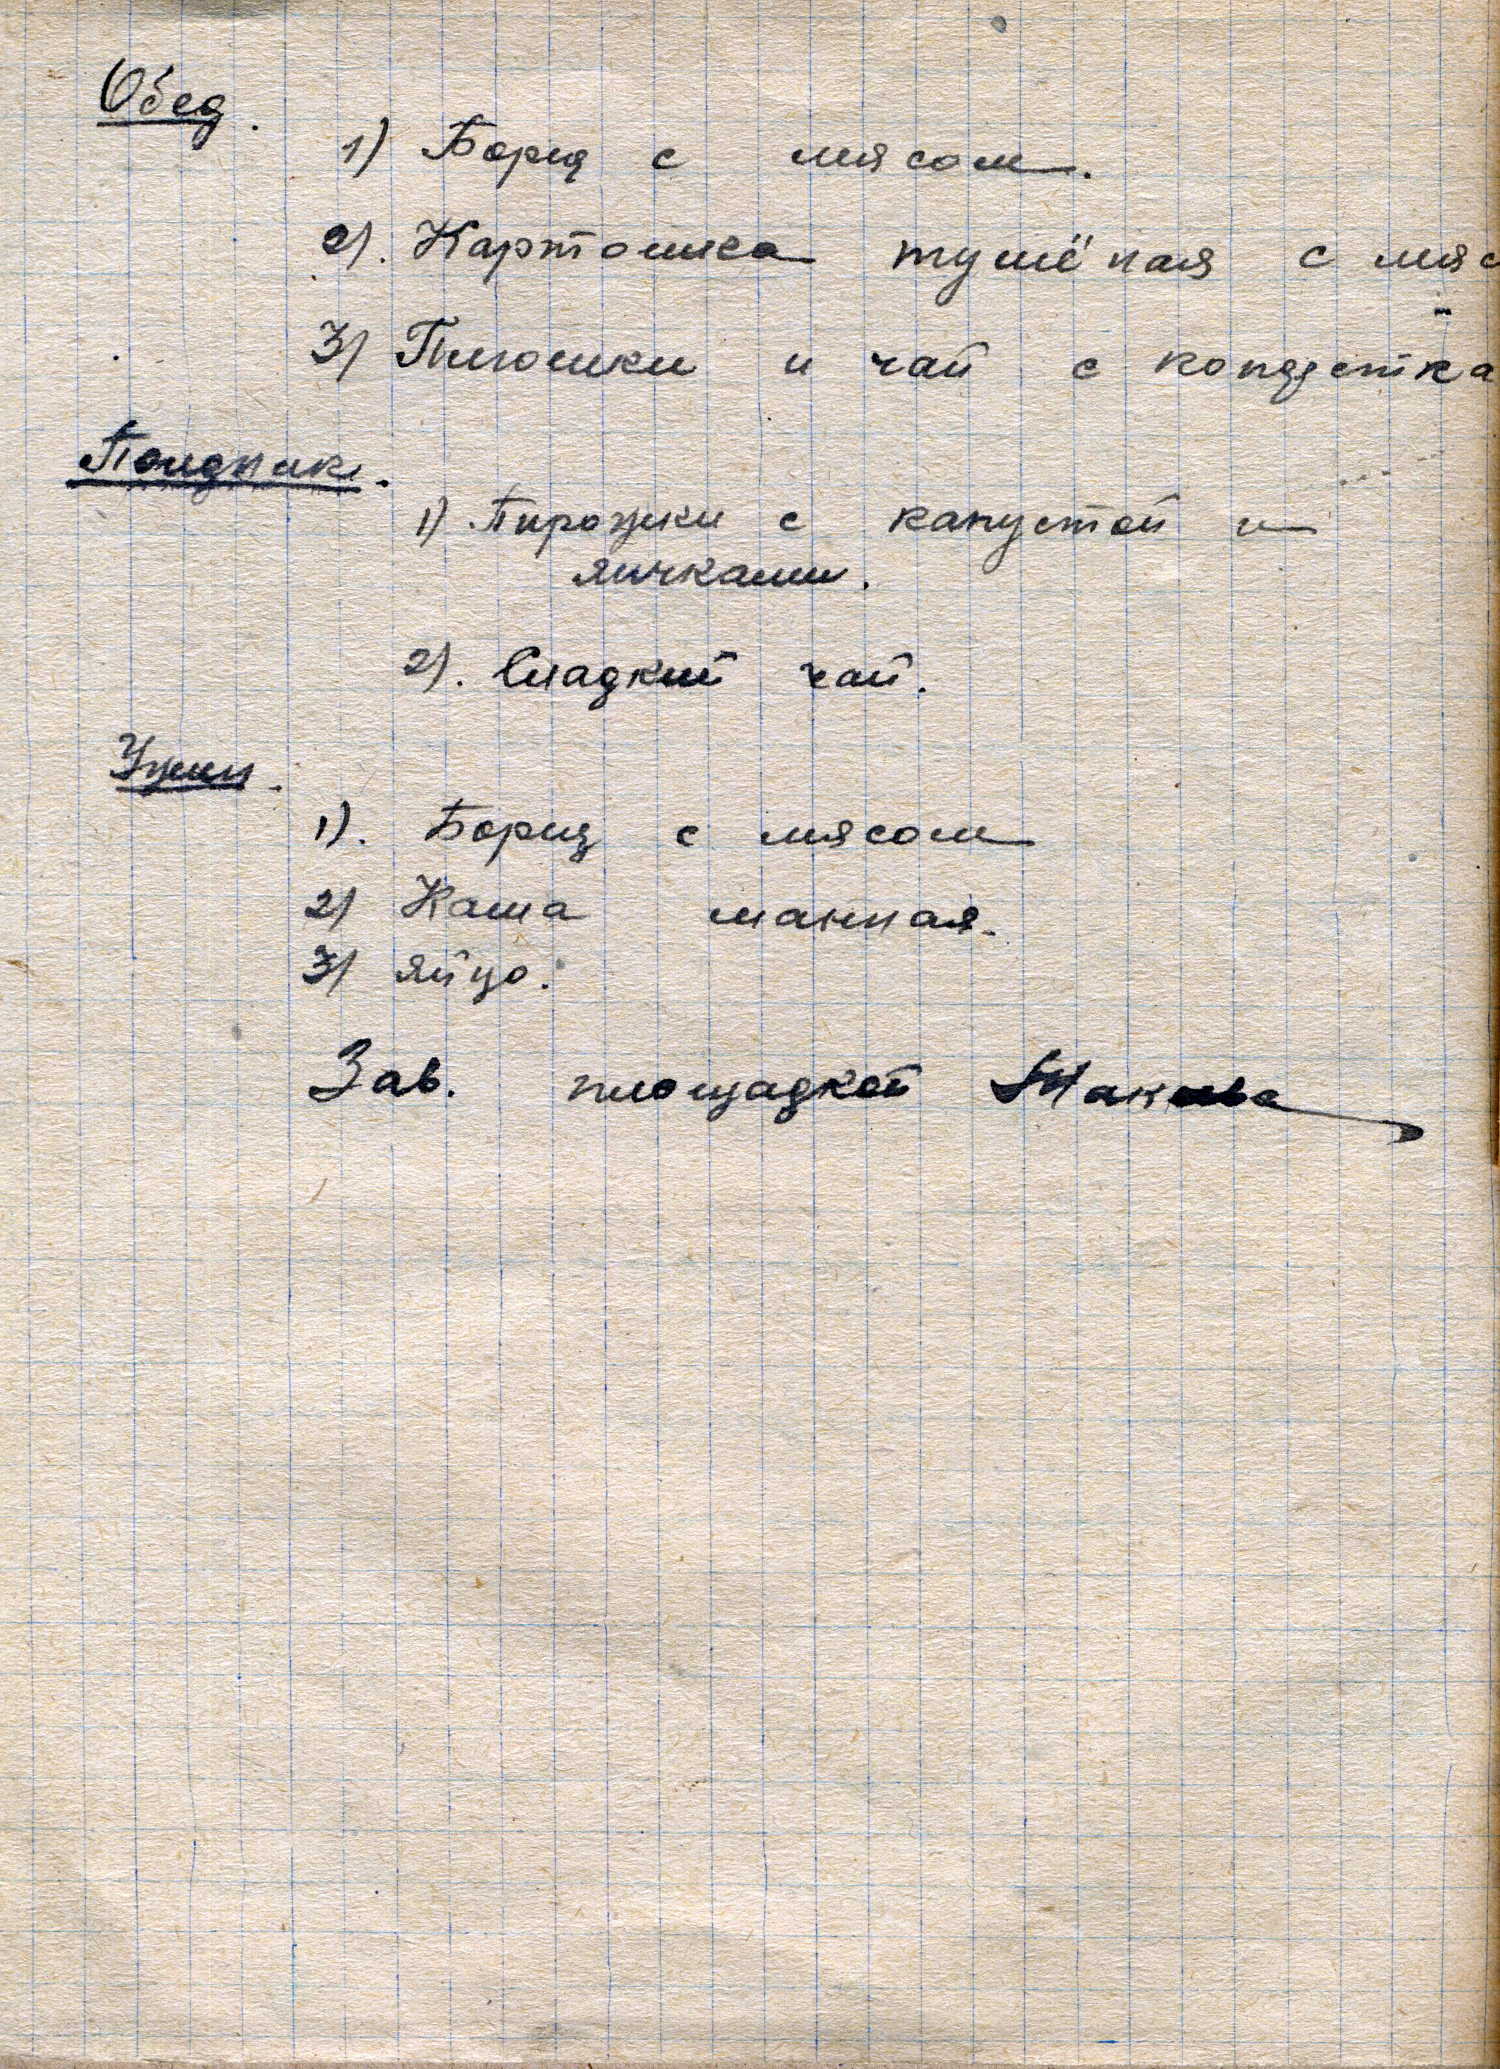 Обед.
1) Борщ с мясом.
2). Картошка тушёная с мяс
3) Плюшки и чай с конфетка
Полдник.
1) Пирожки с капустой и
яичками.
2). Сладкий чай.
Ужин.
1). Борщ с мясом
2) Каша манная.
3) яйцо.
Зав. площадкой